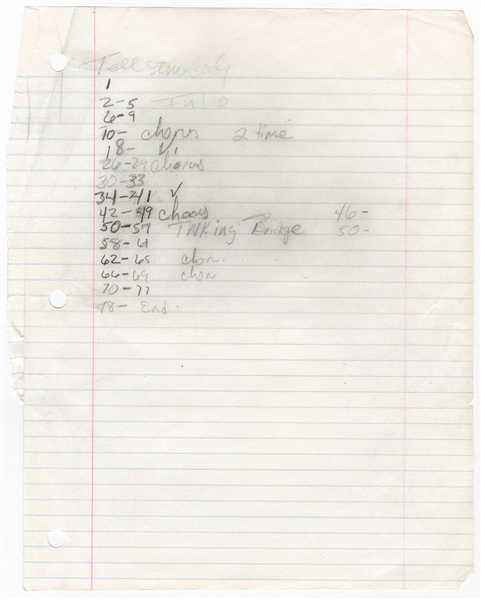 Tell somebody
1
2-5 Intro
6-9
10- chorus 2 time
18- V1
26-29 chorus
30-33
34-41 ✓
42-49 Chorus 46-
50-57 TALKing Bridge 50-
58-61
62-65 chor
66-69 chor
70-77
78- End.